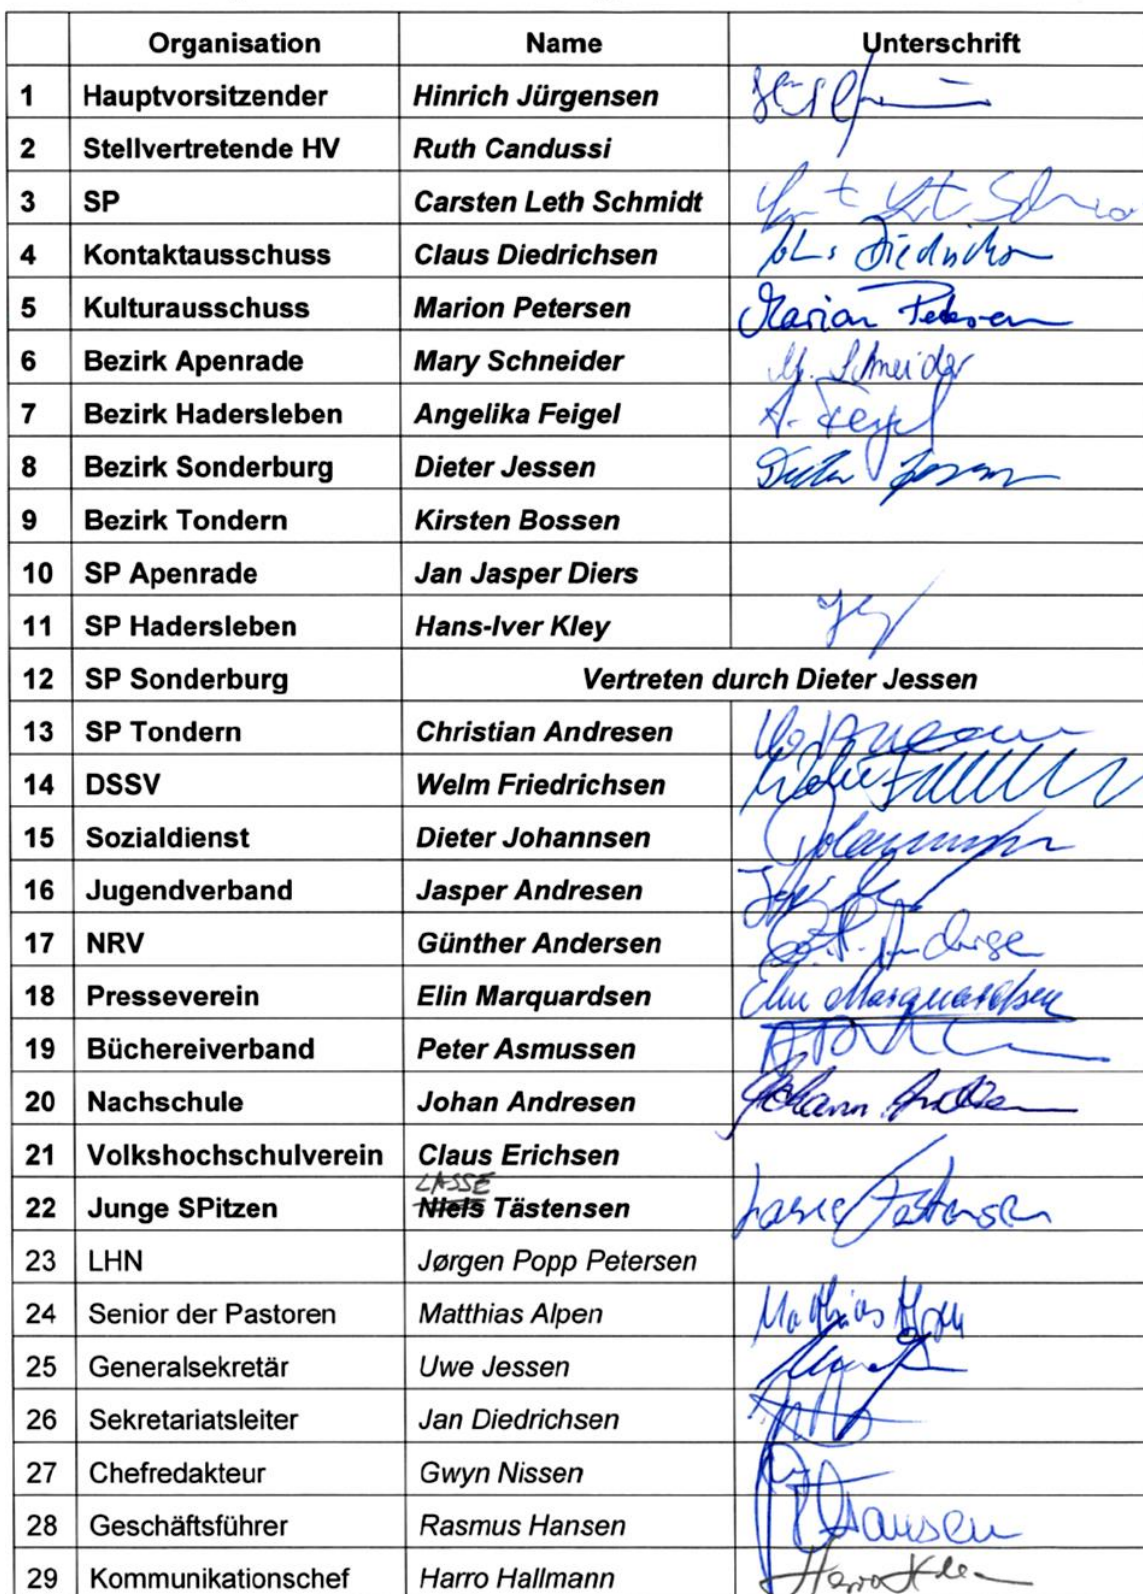 Organisation Name Unterschrift
1 Hauptvorsitzender Hinrich Jürgensen
2 Stellvertretende HV Ruth Candussi
3 SP Carsten Leth Schmidt
4 Kontaktausschuss Claus Diedrichsen
5 Kulturausschuss Marion Petersen Marion Petersen
6 Bezirk Apenrade Mary Schneider M. Schneider
7 Bezirk Hadersleben Angelika Feigel A. Feigel
8 Bezirk Sonderburg Dieter Jessen Dieter Jessen
9 Bezirk Tondern Kirsten Bossen
10 SP Apenrade Jan Jasper Diers
11 SP Hadersleben Hans-Iver Kley
12 SP Sonderburg Vertreten durch Dieter Jessen
13 SP Tondern Christian Andresen
14 DSSV Welm Friedrichsen
15 Sozialdienst Dieter Johannsen
16 Jugendverband Jasper Andresen
17 NRV Günther Andersen
18 Presseverein Elin Marquardsen Elin Marquardsen
19 Büchereiverband Peter Asmussen
20 Nachschule Johan Andresen
21 Volkshochschulverein Claus Erichsen
LASSE
22 Junge SPitzen Niels Tästensen Lasse Tästensen
23 LHN Jørgen Popp Petersen
24 Senior der Pastoren Matthias Alpen Matthias Alpen
25 Generalsekretär Uwe Jessen
26 Sekretariatsleiter Jan Diedrichsen
27 Chefredakteur Gwyn Nissen
28 Geschäftsführer Rasmus Hansen Hansen
29 Kommunikationschef Harro Hallmann